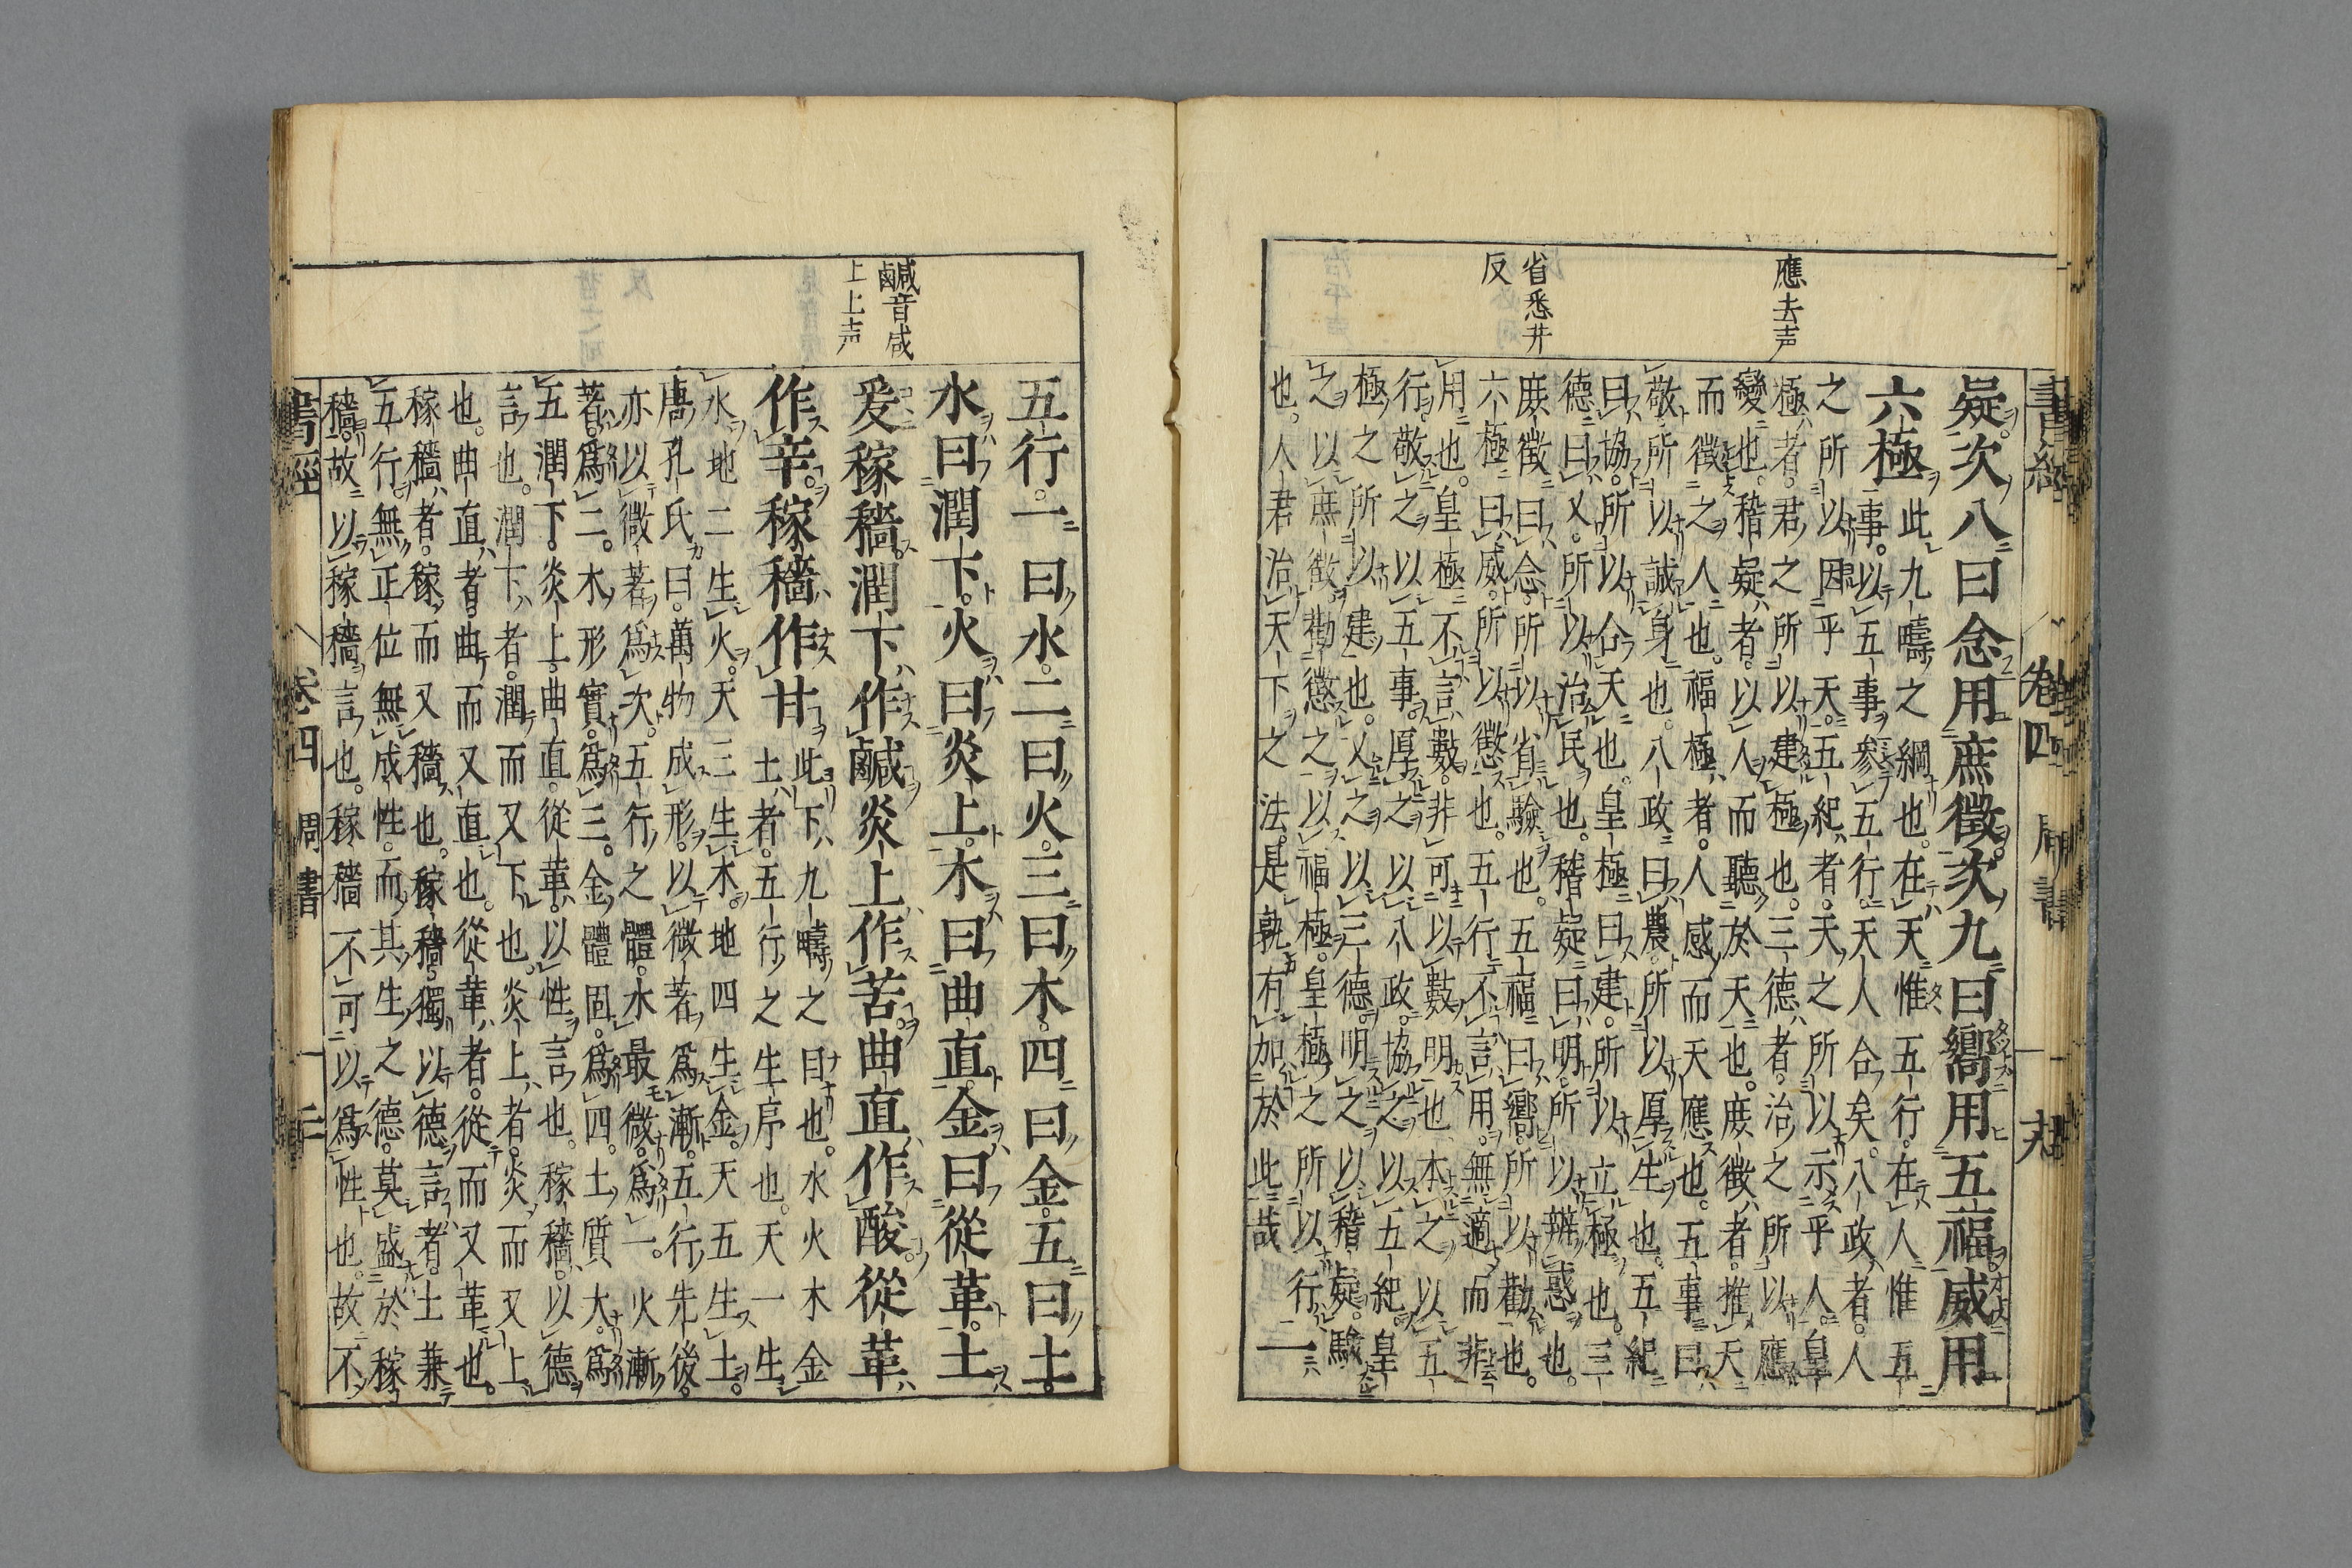 書經 卷四 周書
應去声
省悉井
反
疑次八曰念用庶徵次九曰嚮用五福威用
六極
此九疇之綱也。在天惟五行。在人惟五
事。以五事參五行。天人合矣。八政者。人
之所以因乎天。五紀者。天之所以示乎人。皇
極者。君之所以建極也。三德者。治之所以應
變也。稽疑者。以人而聽於天也。庶徵者。推天
而徵之人也。福極者。人感而天應也。五事曰
敬所以誠身也。八政曰農所以厚生也。五紀
曰協。所以合天也。皇極曰建。所以立極也。三
德曰乂。所以治民也。稽疑曰明所以辨惑也。
庶徵曰念。所以省驗也。五福曰嚮。所以勸也。
六極曰威。所以懲也。五行不言用。無適而非
用也。皇極不言數。非可以數明也。本之以五
行。敬之以五事。厚之以八政。協之以五紀。皇
極之所以建也。乂之以三德。明之以稽疑。驗
之以庶徵。勸懲之以福極。皇極之所以行
也。人君治天下之法。是孰有加於此哉
一
鹹音咸
上上声
五行。一曰水。二曰火。三曰木。四曰金。五曰土。
水曰潤下。火曰炎上。木曰曲直。金曰從革。土
爰稼穡。潤下作鹹炎上作苦。曲直作酸。從革
作辛。稼穡作甘
此下九疇之目也。水火木金
土者。五行之生序也。天一生
水地二生火。天三生木。地四生金。天五生土。
唐孔氏曰。萬物成形。以微著爲漸。五行先後。
亦以微著爲次。五行之體。水最微爲一。火漸
著。爲二。木形實。爲三。金體固。爲四。土質大。爲
五。潤下。炎上。曲直。從革。以性言也。稼穡以德
言也。潤下者。潤而又下也。炎上者。炎而又上
也。曲直者。曲而又直也。從革者。從而又革也。
稼穡者。稼而又穡也。稼穡獨以德言者。土兼
五行。無正位無成性。而其生之德。莫盛於稼
穡。故以稼穡言也。稼穡不可以爲性也。故不
書經 卷四 周書 二十